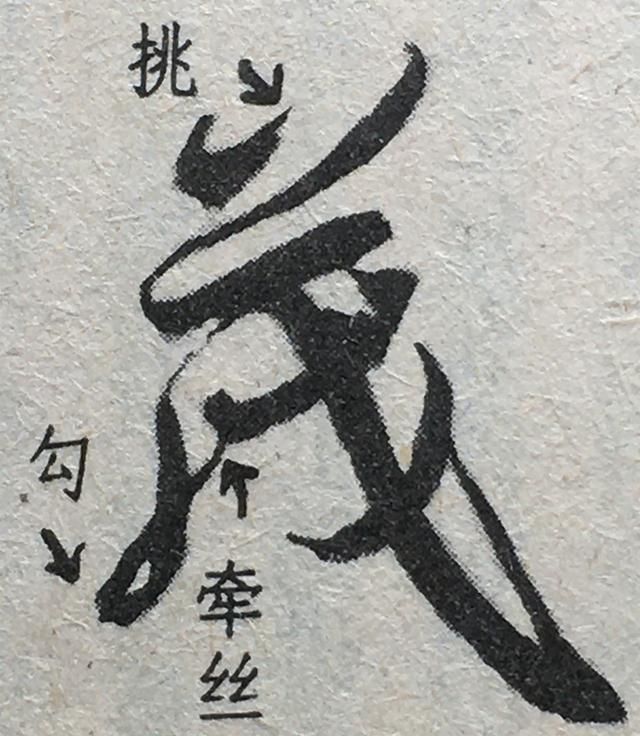 挑
茂
勾
牵丝